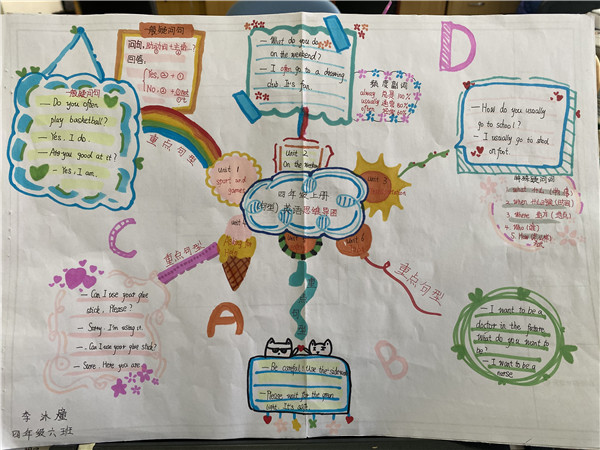 一般疑问句
问句:助动词+主语…?
回答:
Yes, ②+①
No, ②+①
一般疑问句
— Do you often
play basketball?
— Yes. I do.
— Are you good at it?
— Yes. I am.
— What do you do
on the weekend?
— I often go to a
club. It's fun.
频度副词
usually 通常 80%
often
D
— How do you usually
go to school?
— I usually go to
on foot.
特殊疑问词
1. what 什么
2. when
3. Where
4. Who (谁)
5. How
重点句型
Unit 1
sport and
games
Unit 2
On the
Unit 3
四年级上册
英语思维导图
Unit 4
Unit 6
C
重点句型
重点句型
A
B
— Can I use your glue
stick. Please?
— Sorry. I'm using it.
— Can I use your glue stick?
— Sure. Here you are.
— I want to be a
doctor in the future.
What do you want to
be?
— I want to be a
nurse
— Be careful! Use the
— Please wait for the green
light. It's
李沐
四年级六班